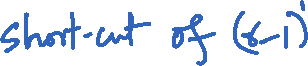 short-cut of (r-1)'